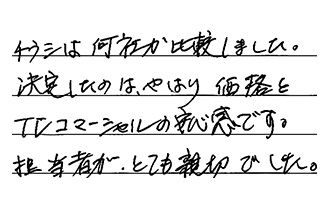 チラシは何社か比較しました。
決定したのは、やはり価格と
TVコマーシャルの安心感です。
担当者が、とても親切でした。